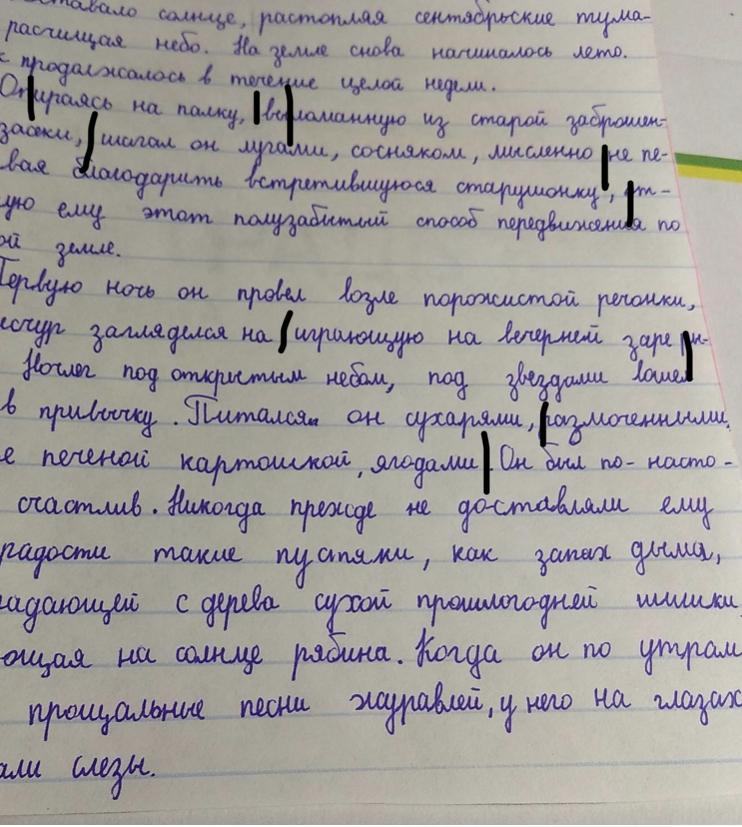 ставало солнце, растопляя сентябрьские тума-
расчищая небо. На земле снова начиналось лето.
продолжалось в течение целой недели.
Опираясь на палку, выломанную из старой заброшен-
засеки, шагал он лугами, сосняком, мысленно не пе-
вая благодарить встретившуюся старушонку, от-
ую ему этот полузабытый способ передвижения по
ой земле.
Первую ночь он провел возле порожистой речонки,
счур загляделся на играющую на вечерней заре
Ночлег под открытым небом, под звездами вошел
в привычку. Питался он сухарями, размоченными
е печеной картошкой, ягодами. Он был по-насто-
счастлив. Никогда прежде не доставляли ему
радости такие пустяки, как запах дыма,
падающей с дерева сухой прошлогодней шишки,
ющая на солнце рябина. Когда он по утрам
прощальные песни журавлей, у него на глазах
али слезы.